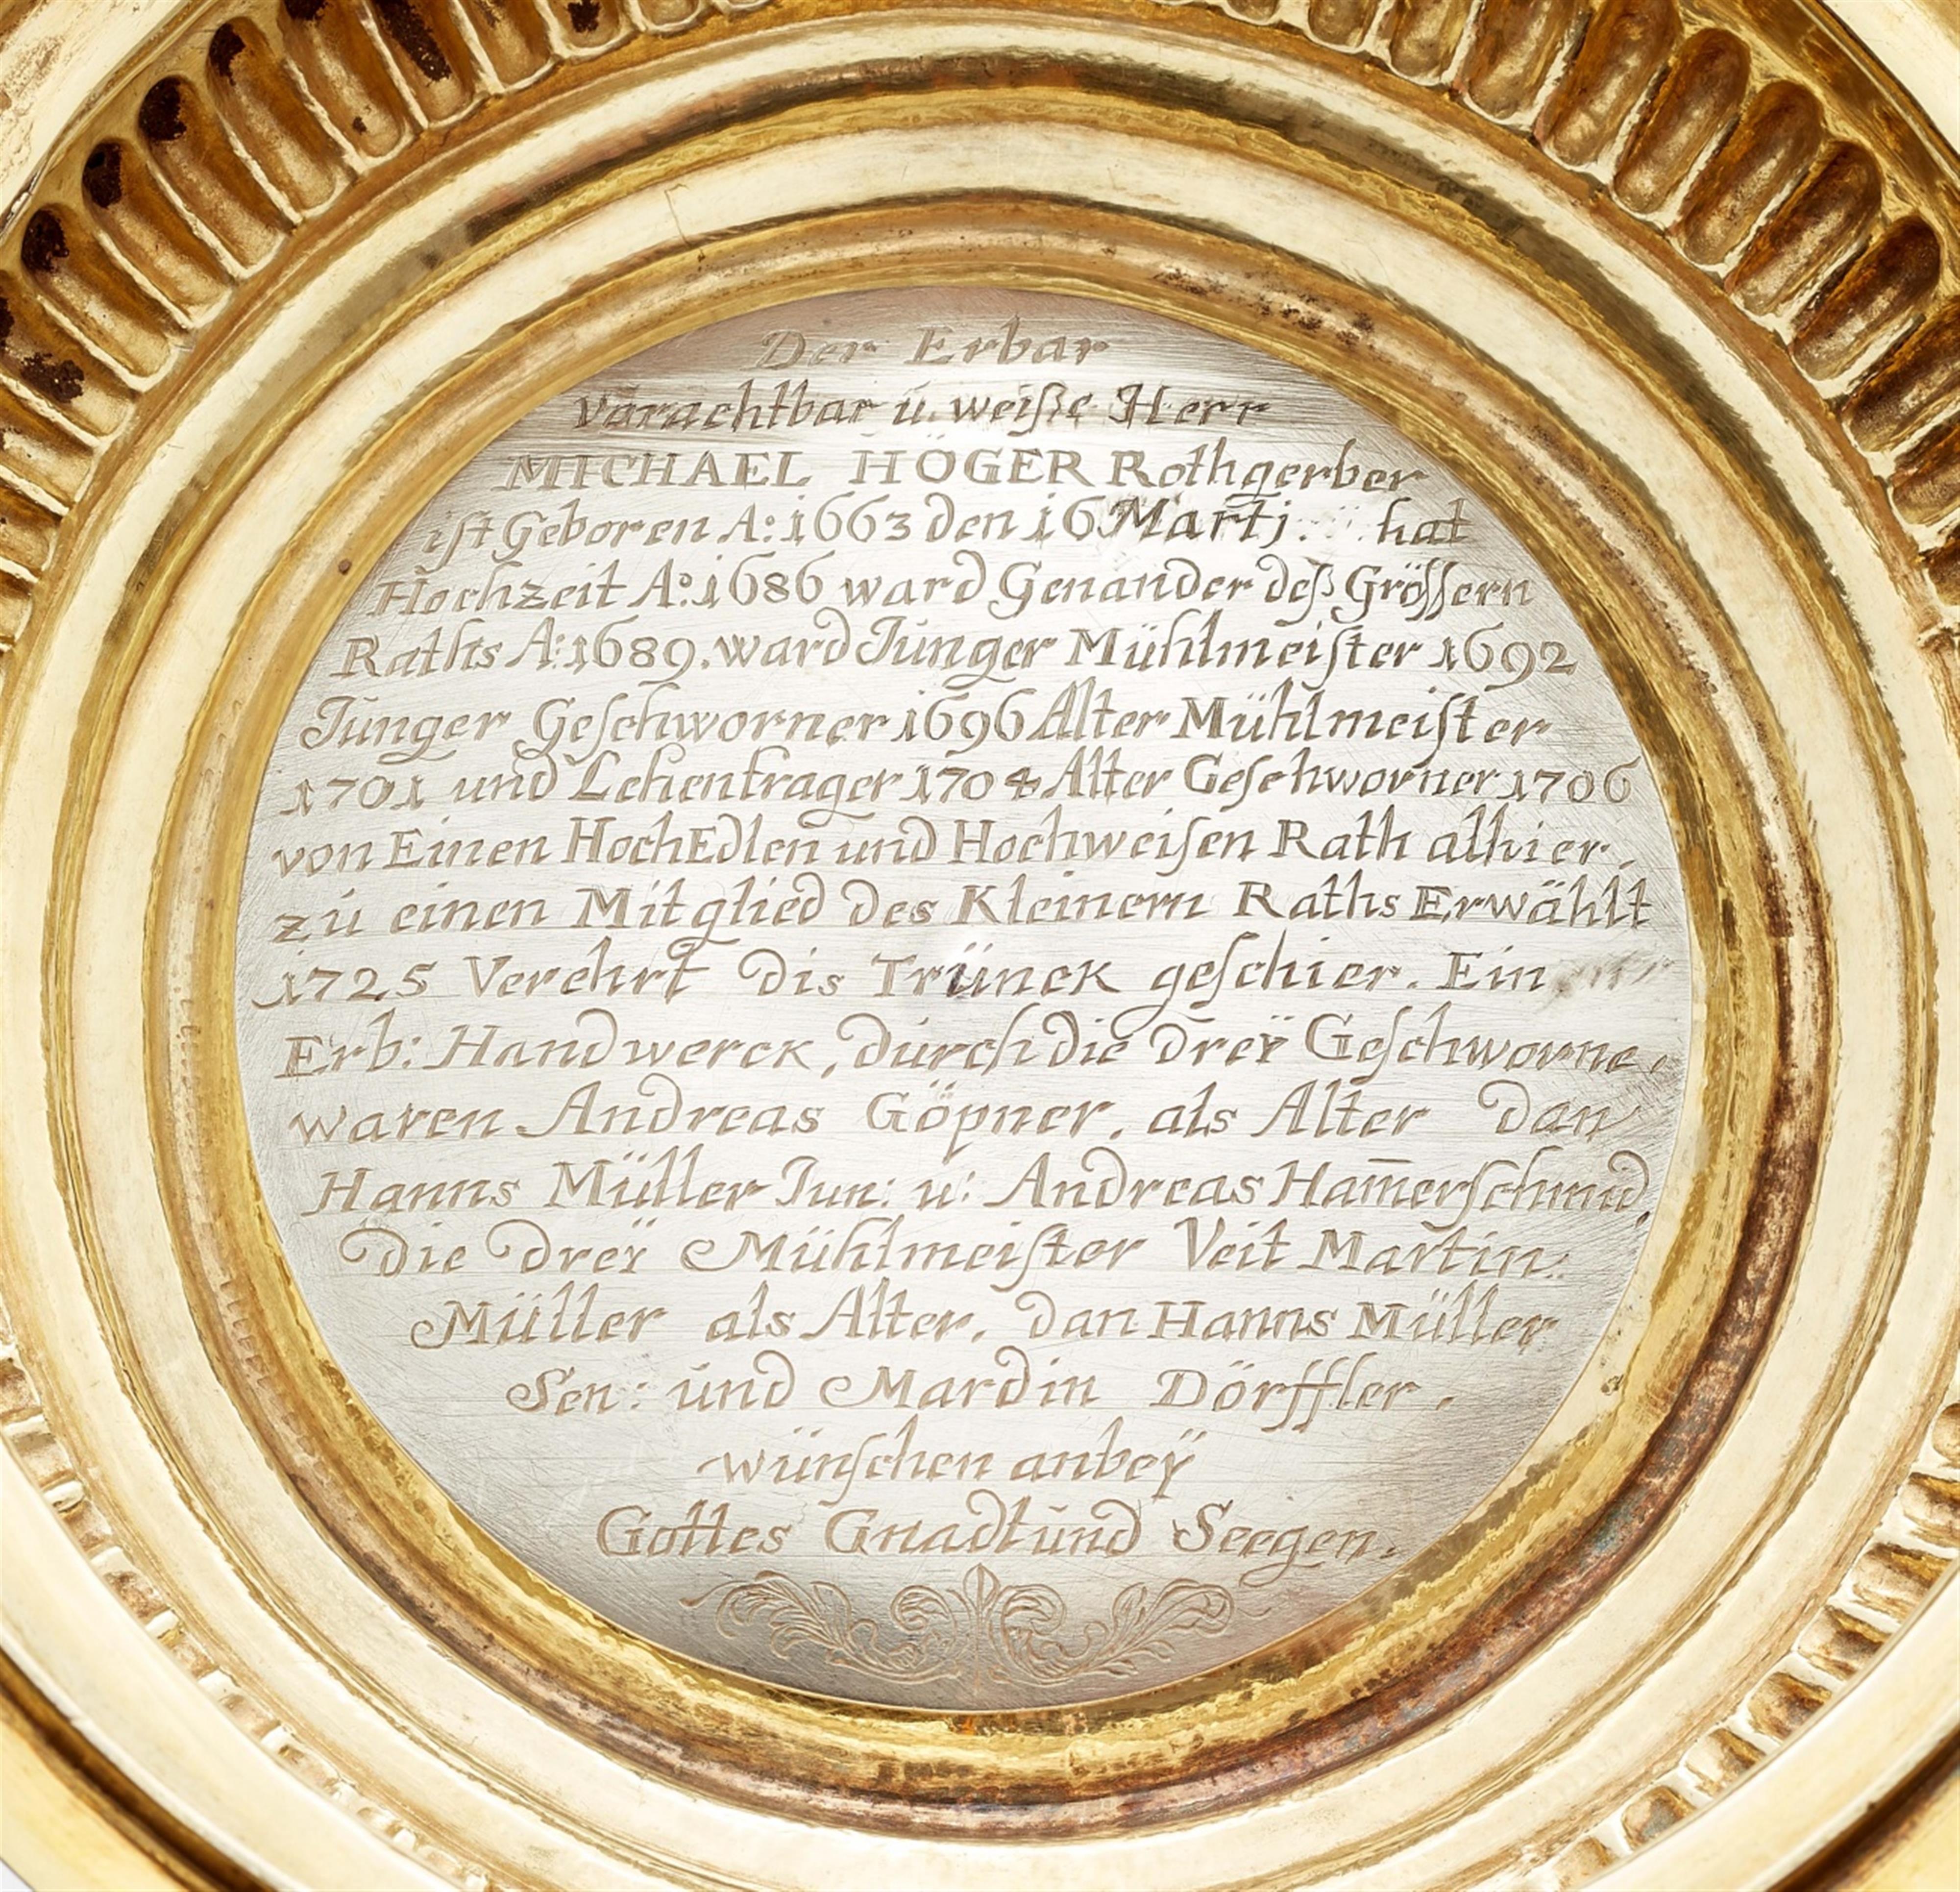 Der Erbar
Vorachtbar ů. weiße Herr
MICHAEL HÖGER Rothgerber
iſt Geboren A: 1663 den 16 Martj. hat
Hochzeit Aº. 1686 ward Genander deß Gröſſern
Raths A: 1689. ward Jůnger Mühlmeiſter 1692
Jůnger Geſchworner 1696 Alter Mühlmeiſter
1701 und Lehentrager 1704 Alter Geſchworner 1706
von Einen HochEdlen und Hochweiſen Rath alhier.
zů einen Mitglied des Kleinern Raths Erwählt
1725 Verehrt dis Trünck geſchier. Ein
Erb: Handwerck, důrch die dreÿ Geſchworne.
waren Andreas Göpner. als Alter dan
Hanns Müller Jun: u: Andreas Ham̄erſchmid,
die dreÿ Mühlmeiſter Veit Martin
Müller als Alter. dan Hanns Müller
Sen: ůnd Mardin Dörffler.
wünſchen anbeÿ
Gottes Gnadt ůnd Seegen.